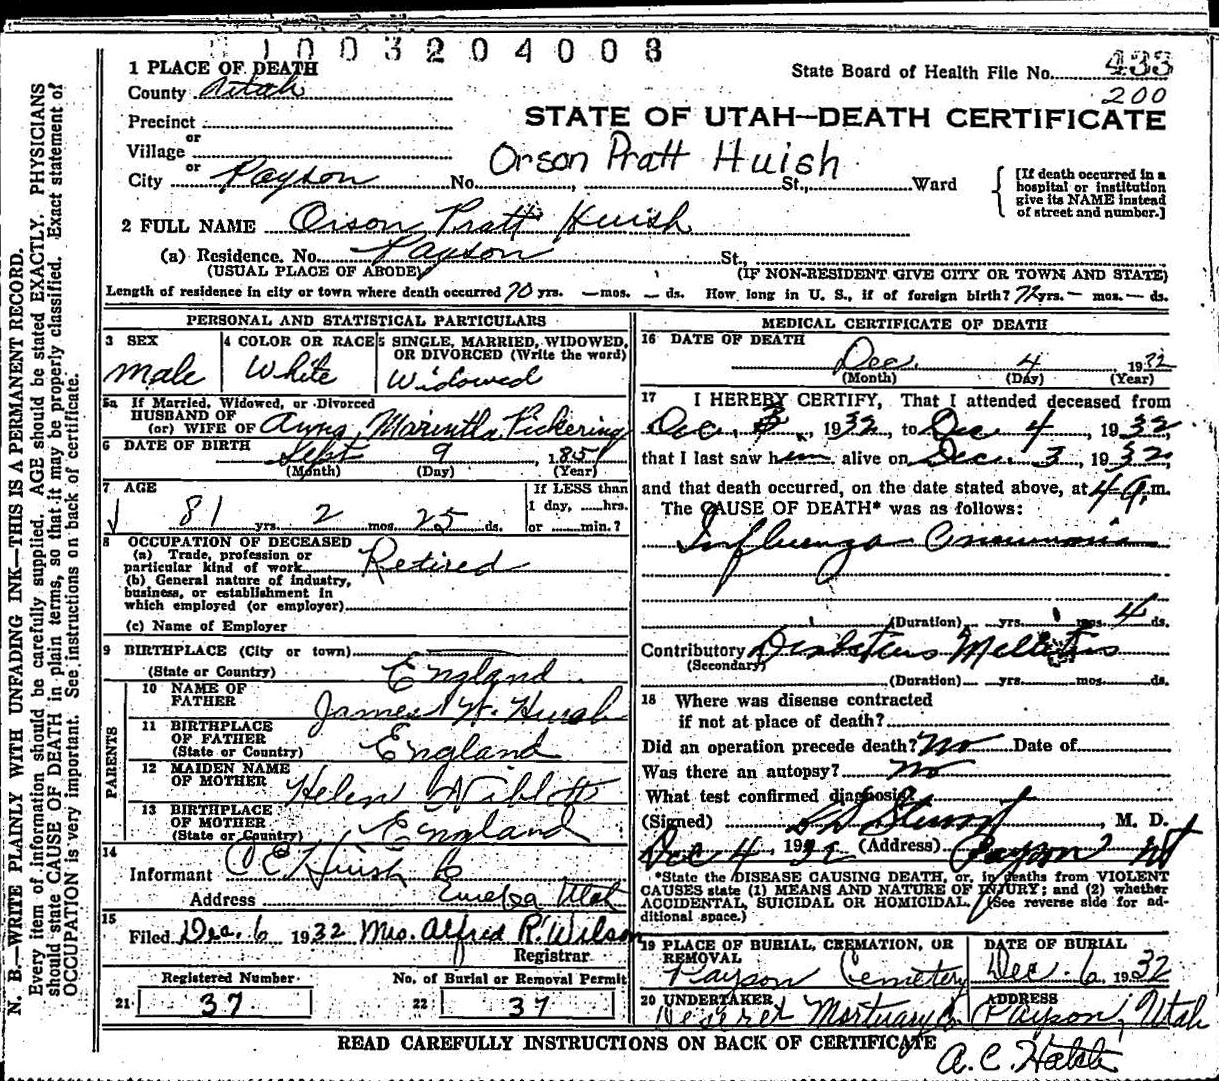 1003204008
1 PLACE OF DEATH
State Board of Health File No. 433
County Utah
200
STATE OF UTAH—DEATH CERTIFICATE
Precinct
or
Village
Orson Pratt Huish
or
City Payson No. , St., Ward
[If death occurred in a
hospital or institution
give its NAME instead
of street and number.]
2 FULL NAME Orson Pratt Huish
(a) Residence. No. Payson St.,
(USUAL PLACE OF ABODE) (IF NON-RESIDENT GIVE CITY OR TOWN AND STATE)
Length of residence in city or town where death occurred 70 yrs. — mos. — ds. How long in U. S., if of foreign birth? 72 yrs. — mos. — ds.
PERSONAL AND STATISTICAL PARTICULARS
3 SEX
male
4 COLOR OR RACE
White
5 SINGLE, MARRIED, WIDOWED,
OR DIVORCED (Write the word)
Widowed
5a If Married, Widowed, or Divorced
HUSBAND OF
(or) WIFE OF Anna Marintha Pickering
6 DATE OF BIRTH Sept 9, 1851
(Month) (Day) (Year)
7 AGE
81 yrs. 2 mos. 25 ds.
If LESS than
1 day, ......hrs.
or ......min.?
8 OCCUPATION OF DECEASED
(a) Trade, profession or
particular kind of work Retired
(b) General nature of industry,
business, or establishment in
which employed (or employer)
(c) Name of Employer
9 BIRTHPLACE (City or town)
(State or Country) England
PARENTS
10 NAME OF
FATHER James W. Huish
11 BIRTHPLACE
OF FATHER
(State or Country) England
12 MAIDEN NAME
OF MOTHER Helen Niblett
13 BIRTHPLACE
OF MOTHER
(State or Country) England
14
Informant C E Huish
Address Eureka Utah
15
Filed Dec. 6 1932 Mrs. Alfred R. Wilson
Registrar
Registered Number No. of Burial or Removal Permit
21 37 22 37
MEDICAL CERTIFICATE OF DEATH
16 DATE OF DEATH
Dec. 4 1932
(Month) (Day) (Year)
17 I HEREBY CERTIFY, That I attended deceased from
Dec. 3, 1932, to Dec 4, 1932,
that I last saw him alive on Dec. 3, 1932,
and that death occurred, on the date stated above, at 4 a.m.
The CAUSE OF DEATH* was as follows:
Influenza Pneumonia
(Duration) yrs. mos. 4 ds.
Contributory Diabetus Mellitus
(Secondary)
(Duration) yrs. mos. ds.
18 Where was disease contracted
if not at place of death?
Did an operation precede death? no Date of
Was there an autopsy? no
What test confirmed diagnosis?
(Signed) Stewart, M. D.
Dec 4, 1932 (Address) Payson Ut
*State the DISEASE CAUSING DEATH, or, in deaths from VIOLENT
CAUSES state (1) MEANS AND NATURE OF INJURY; and (2) whether
ACCIDENTAL, SUICIDAL OR HOMICIDAL. (See reverse side for ad-
ditional space.)
19 PLACE OF BURIAL, CREMATION, OR
REMOVAL
Payson Cemetery
DATE OF BURIAL
Dec. 6 1932
20 UNDERTAKER
Deseret Mortuary Co
ADDRESS
Payson, Utah
READ CAREFULLY INSTRUCTIONS ON BACK OF CERTIFICATE
A. C. Hatch
N. B.—WRITE PLAINLY WITH UNFADING INK—THIS IS A PERMANENT RECORD.
Every item of information should be carefully supplied. AGE should be stated EXACTLY. PHYSICIANS
should state CAUSE OF DEATH in plain terms, so that it may be properly classified. Exact statement of
OCCUPATION is very important. See instructions on back of certificate.